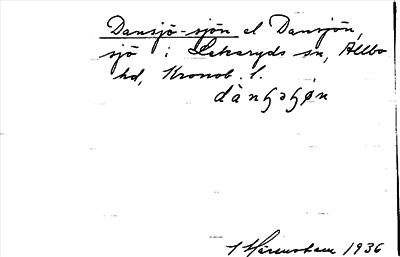 Dansjö-sjön el Dansjön,
sjö i Lekaryds sn, Allbo
hd, Kronob. l.
1936